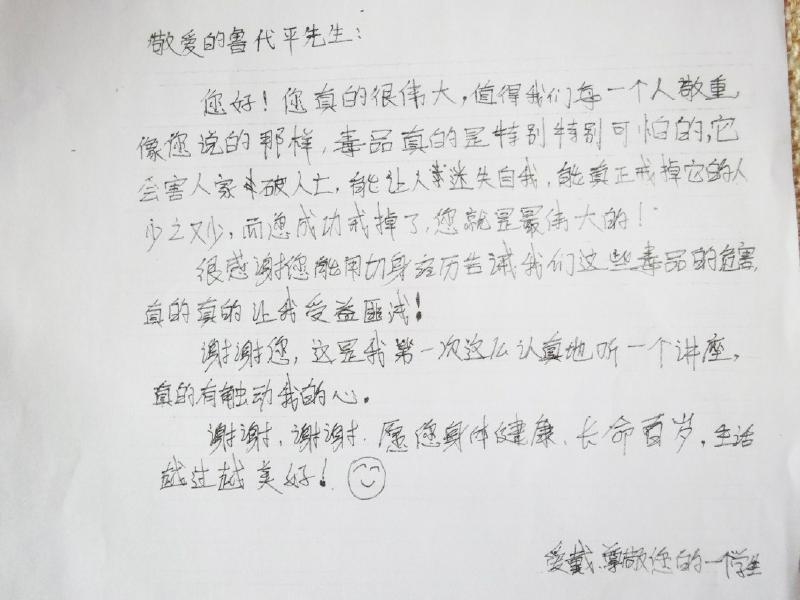 敬爱的鲁代平先生：
您好！您真的很伟大，值得我们每一个人敬重
像您说的那样，毒品真的是特别特别可怕的，它
会害人家破人亡，能让人迷失自我，能真正戒掉它的人
少之又少，而您成功戒掉了，您就是最伟大的！
很感谢您能用切身经历告诫我们这些毒品的危害，
真的真的让我受益匪浅！
谢谢您，这是我第一次这么认真地听一个讲座，
真的有触动我的心。
谢谢，谢谢，愿您身体健康、长命百岁，生活
越过越美好！
爱戴、尊敬您的一学生